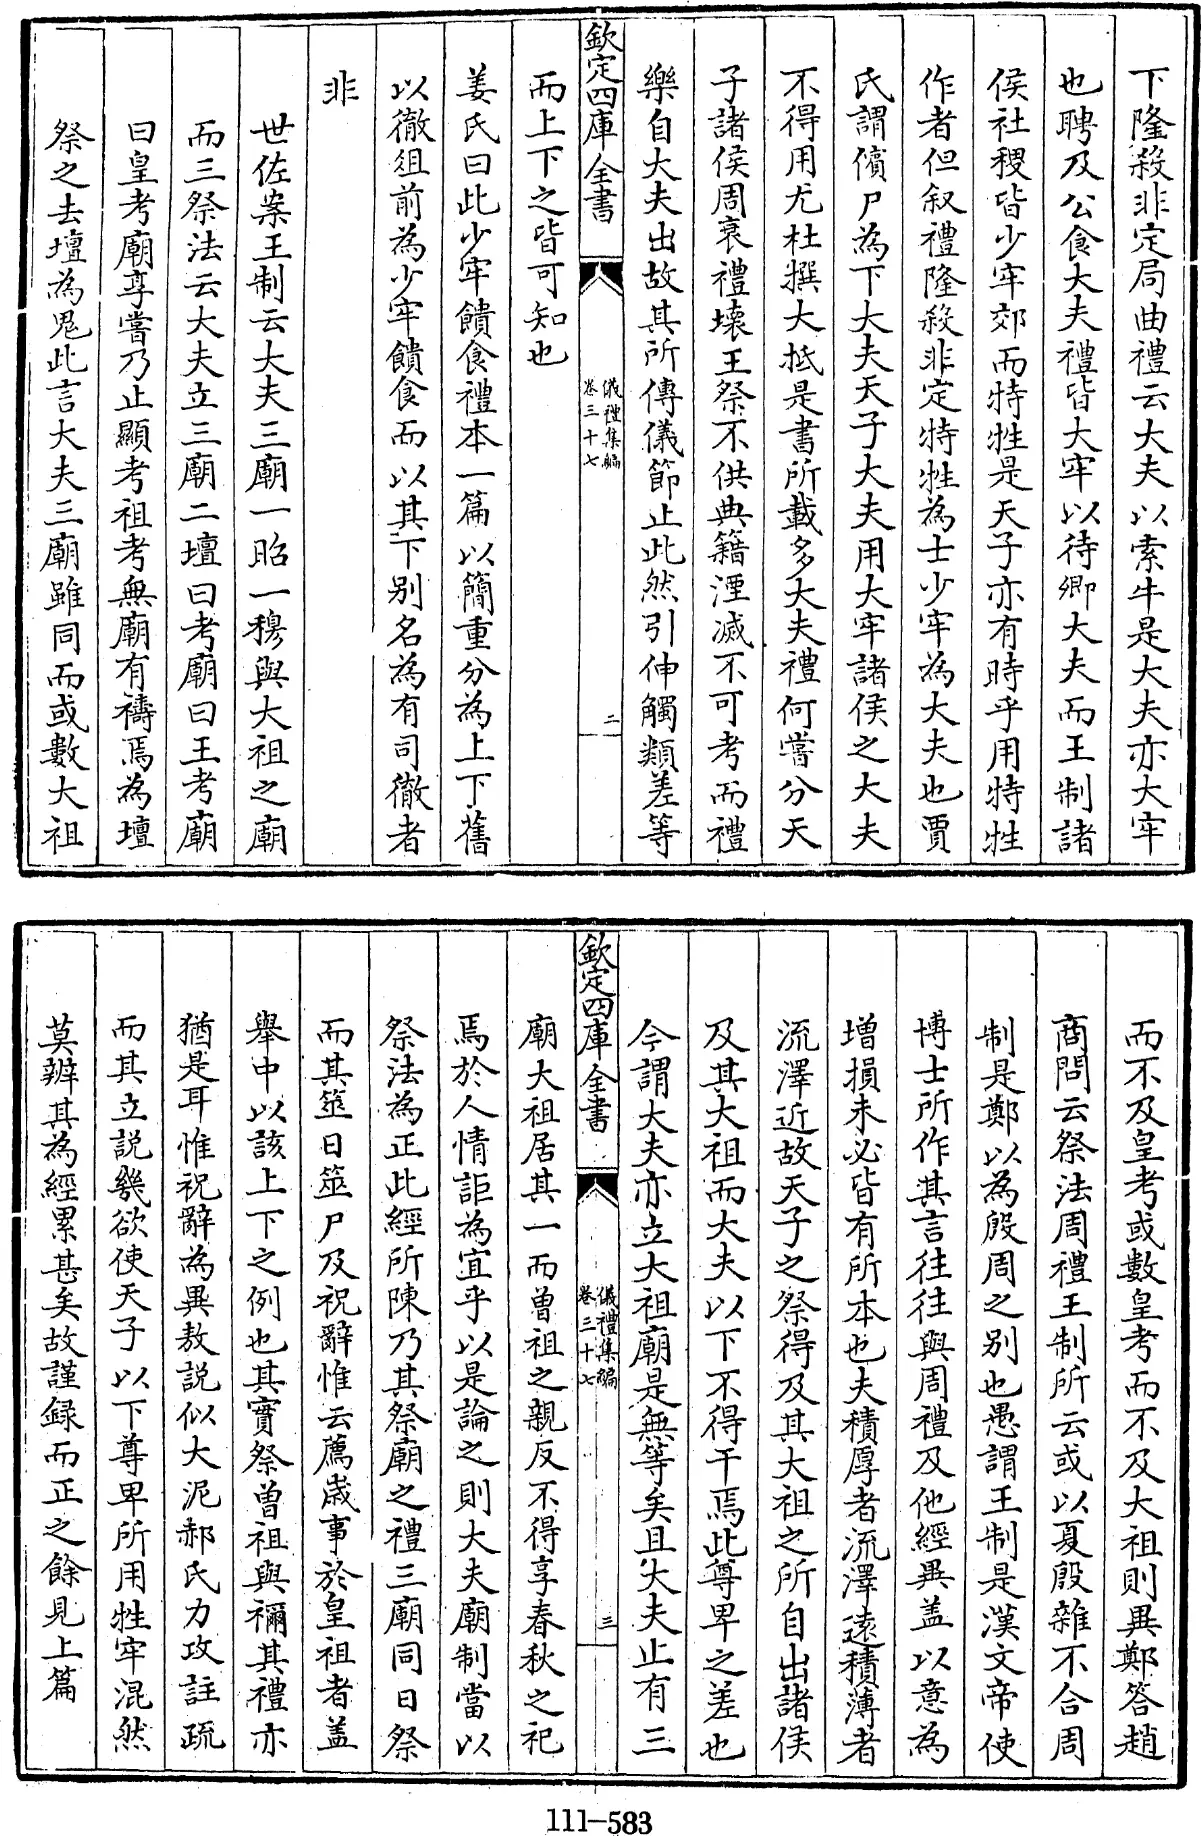 下隆殺非定局曲禮云大夫以索牛是大夫亦大牢
也聘及公食大夫禮皆大牢以待卿大夫而王制諸
侯社稷皆少牢郊而特牲是天子亦有時乎用特牲
作者但叙禮隆殺非定特牲為士少牢為大夫也賈
氏謂儐尸為下大夫天子大夫用大牢諸侯之大夫
不得用尤杜撰大抵是書所載多大夫禮何嘗分天
子諸侯周衰禮壊王祭不供典籍湮滅不可考而禮
樂自大夫出故其所傳儀節止此然引伸觸類差等
欽定四庫全書
儀禮集編
卷三十七
二
而上下之皆可知也
姜氏曰此少牢饋食禮本一篇以簡重分為上下舊
以徹俎前為少牢饋食而以其下别名為有司徹者
非
世佐案王制云大夫三廟一昭一穆與大祖之廟
而三祭法云大夫立三廟二壇曰考廟曰王考廟
曰皇考廟享嘗乃止顯考祖考無廟有禱焉為壇
祭之去壇為鬼此言大夫三廟雖同而或數大祖
而不及皇考或數皇考而不及大祖則異鄭答趙
商問云祭法周禮王制所云或以夏殷雜不合周
制是鄭以為殷周之别也愚謂王制是漢文帝使
博士所作其言往往與周禮及他經異盖以意為
增損未必皆有所本也夫積厚者流澤遠積薄者
流澤近故天子之祭得及其大祖之所自出諸侯
及其大祖而大夫以下不得干焉此尊卑之差也
今謂大夫亦立大祖廟是無等矣且大夫止有三
欽定四庫全書
儀禮集編
卷三十七
三
廟大祖居其一而曽祖之親反不得享春秋之祀
焉於人情詎為宜乎以是論之則大夫廟制當以
祭法為正此經所陳乃其祭廟之禮三廟同日祭
而其筮日筮尸及祝辭惟云薦歲事於皇祖者盖
舉中以該上下之例也其實祭曽祖與禰其禮亦
猶是耳惟祝辭為異敖説似大泥郝氏力攻註疏
而其立説幾欲使天子以下尊卑所用牲牢混然
莫辨其為經累甚矣故謹録而正之餘見上篇
111-583